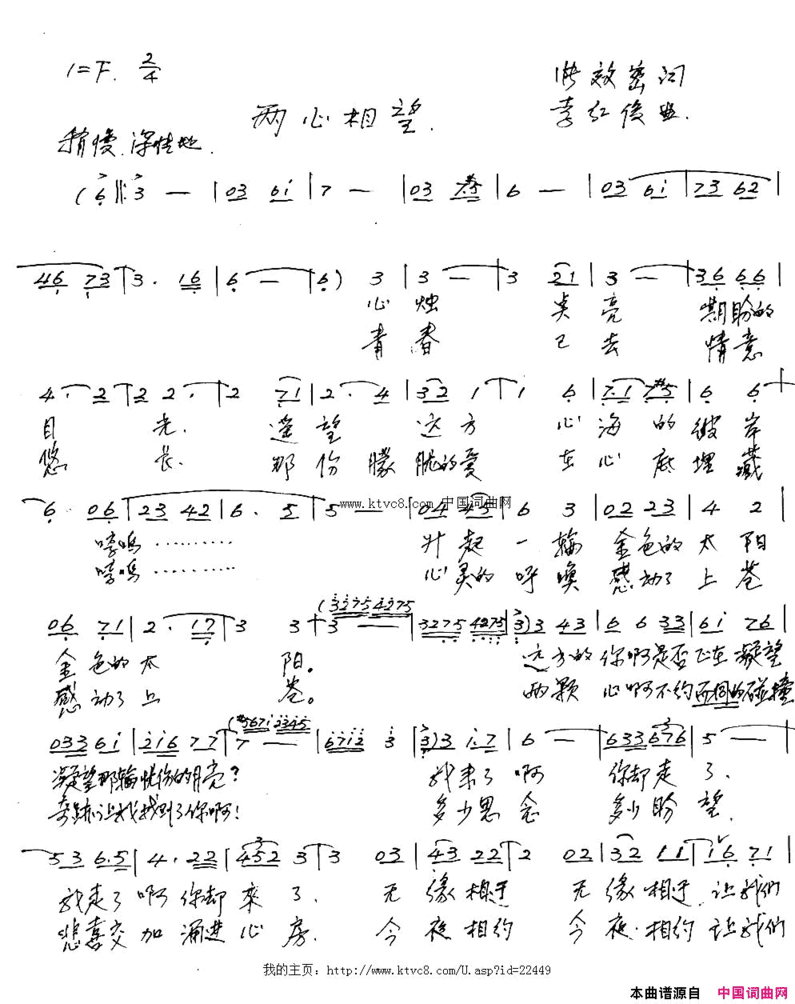 1=F. 2/4
两心相望.
效密词
李红俊曲.
稍慢.深情地.
(6 ‖: 3 — | 03 6i | 7 — | 03 7#5 | 6 — | 03 6i | 73 62 |
46 73 | 3. 16 | 6 — | 6) 3 | 3 — | 3 21 | 3 — | 36 66 |
心 烛 亮 期盼的
青 春 已 去 情意
4. 2 | 2 2. | 2 71 | 2. 4 | 32 1 | 1 6 | 7.1 7#5 | 6 6 |
目 光. 遥 望 这 方 心 海 的 彼 岸
悠 长. 那 份 朦 胧的 爱 在 心 底 埋 藏
6. 06 | 23 42 | 6. 5 | 5 — | 04 45 | 6 3 | 02 23 | 4 2 |
www.ktvc8.com 中国词曲网
…………
升 起 一 轮 金色的 太 阳
…………
心灵的 呼 唤 感动了 上 苍
06 71 | 2. 17 | 3 3 | 3 — | 3275 4275 | 3) 3 43 | 6 6 33 | 6i 76 |
(3275 4275
金 色的 太 阳。 远方的 你啊是否 在 凝望
感 动了 上 苍。 两颗 心啊不约而同的碰撞
(#567i 2345
033 6i | 2i6 77 | 7 — | 67i2 3 | 3) 3 1.7 | 6 — | 633 676 | 5 — |
凝望那轮忧伤的月亮? 我来了 啊 你却 走 了.
奇迹让我找到了你啊! 多少思 念 多少 盼 望.
53 6.5 | 4. 22 | 452 3 | 3 03 | 43 22 | 2 02 | 32 11 | 16 71 |
我走了 啊 你却 来 了. 无 缘 相守 无 缘 相守. 让我们
悲喜交 加 涌进 心 房. 今 夜 相约 今 夜.相约 让我们
我的主页：http://www.ktvc8.com/U.asp?id=22449
本曲谱源自 中国词曲网